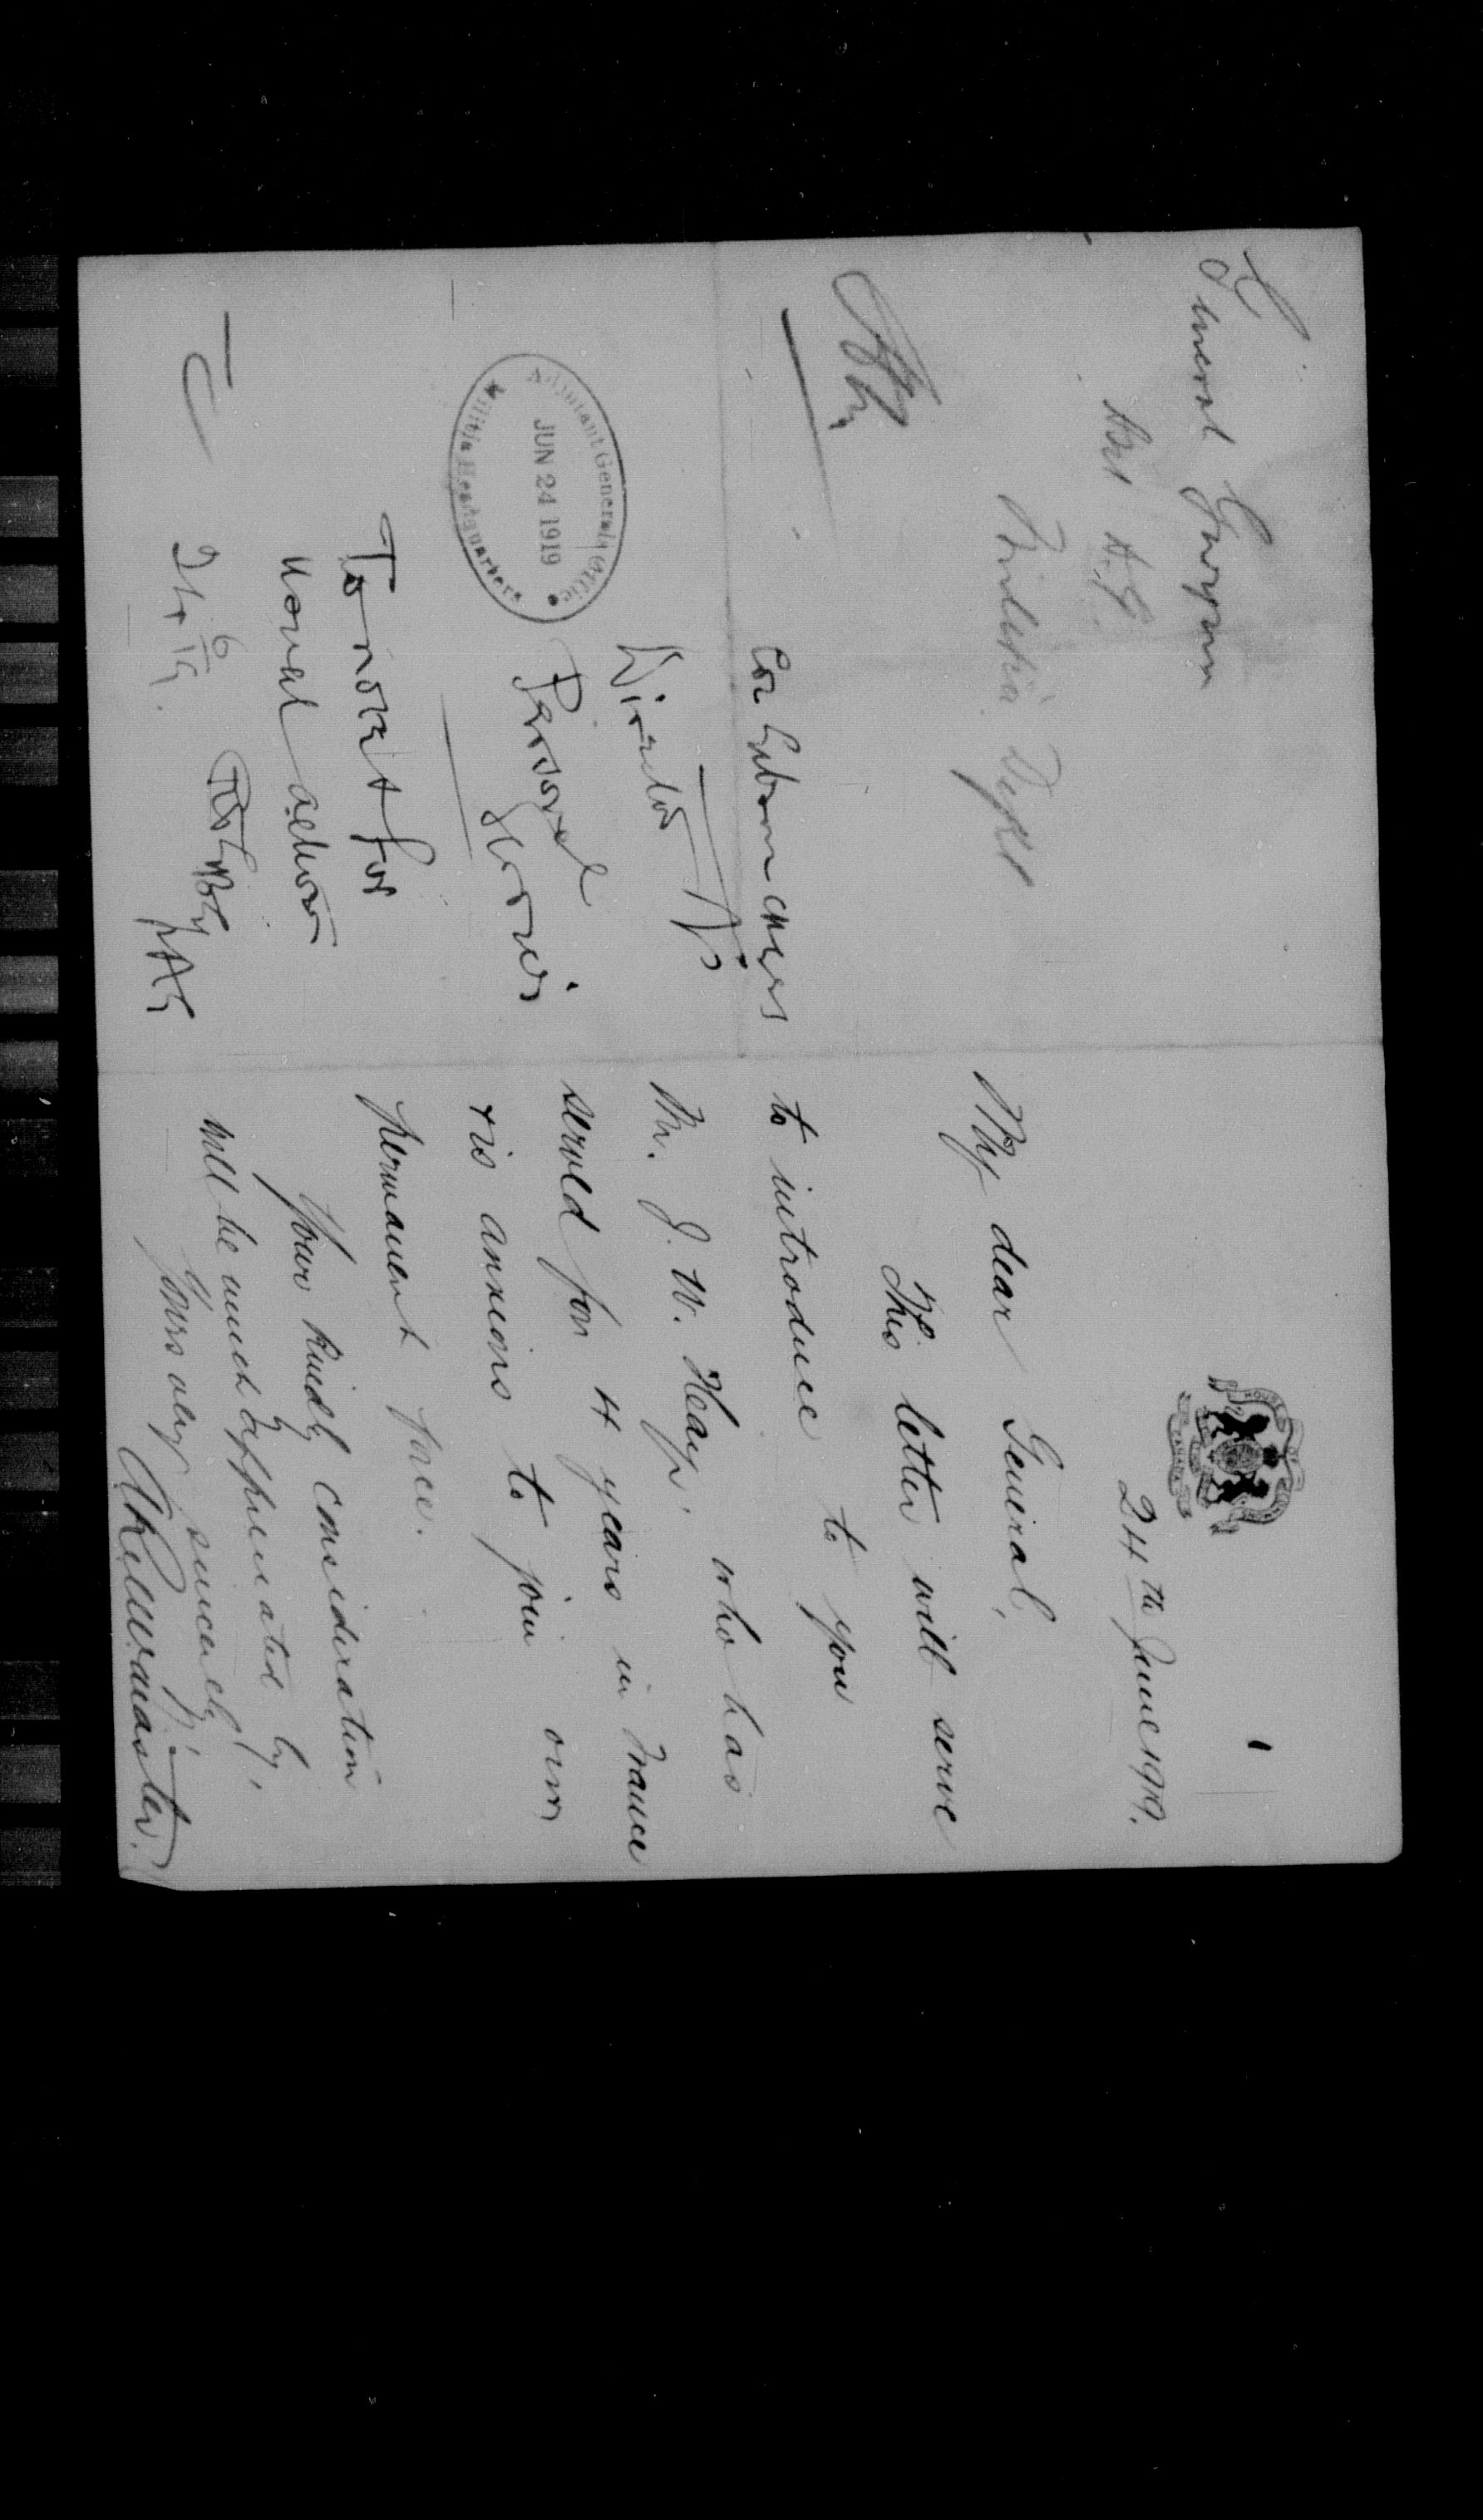 General Gwynn
Asst A.G.
Militia Dept
Director
Personal Services
To note & for
usual action
24 6/19
Adjutant General's Office
JUN 24 1919
Militia Headquarters
HOUSE OF COMMONS
CANADA
24th June 1919.
My dear General,
This letter will serve
to introduce to you
Mr. J. W. Heap. who has
served for 4 years in France
& is anxious to join our
permanent force.
Your kindly consideration
will be much appreciated by,
Yours very sincerely,